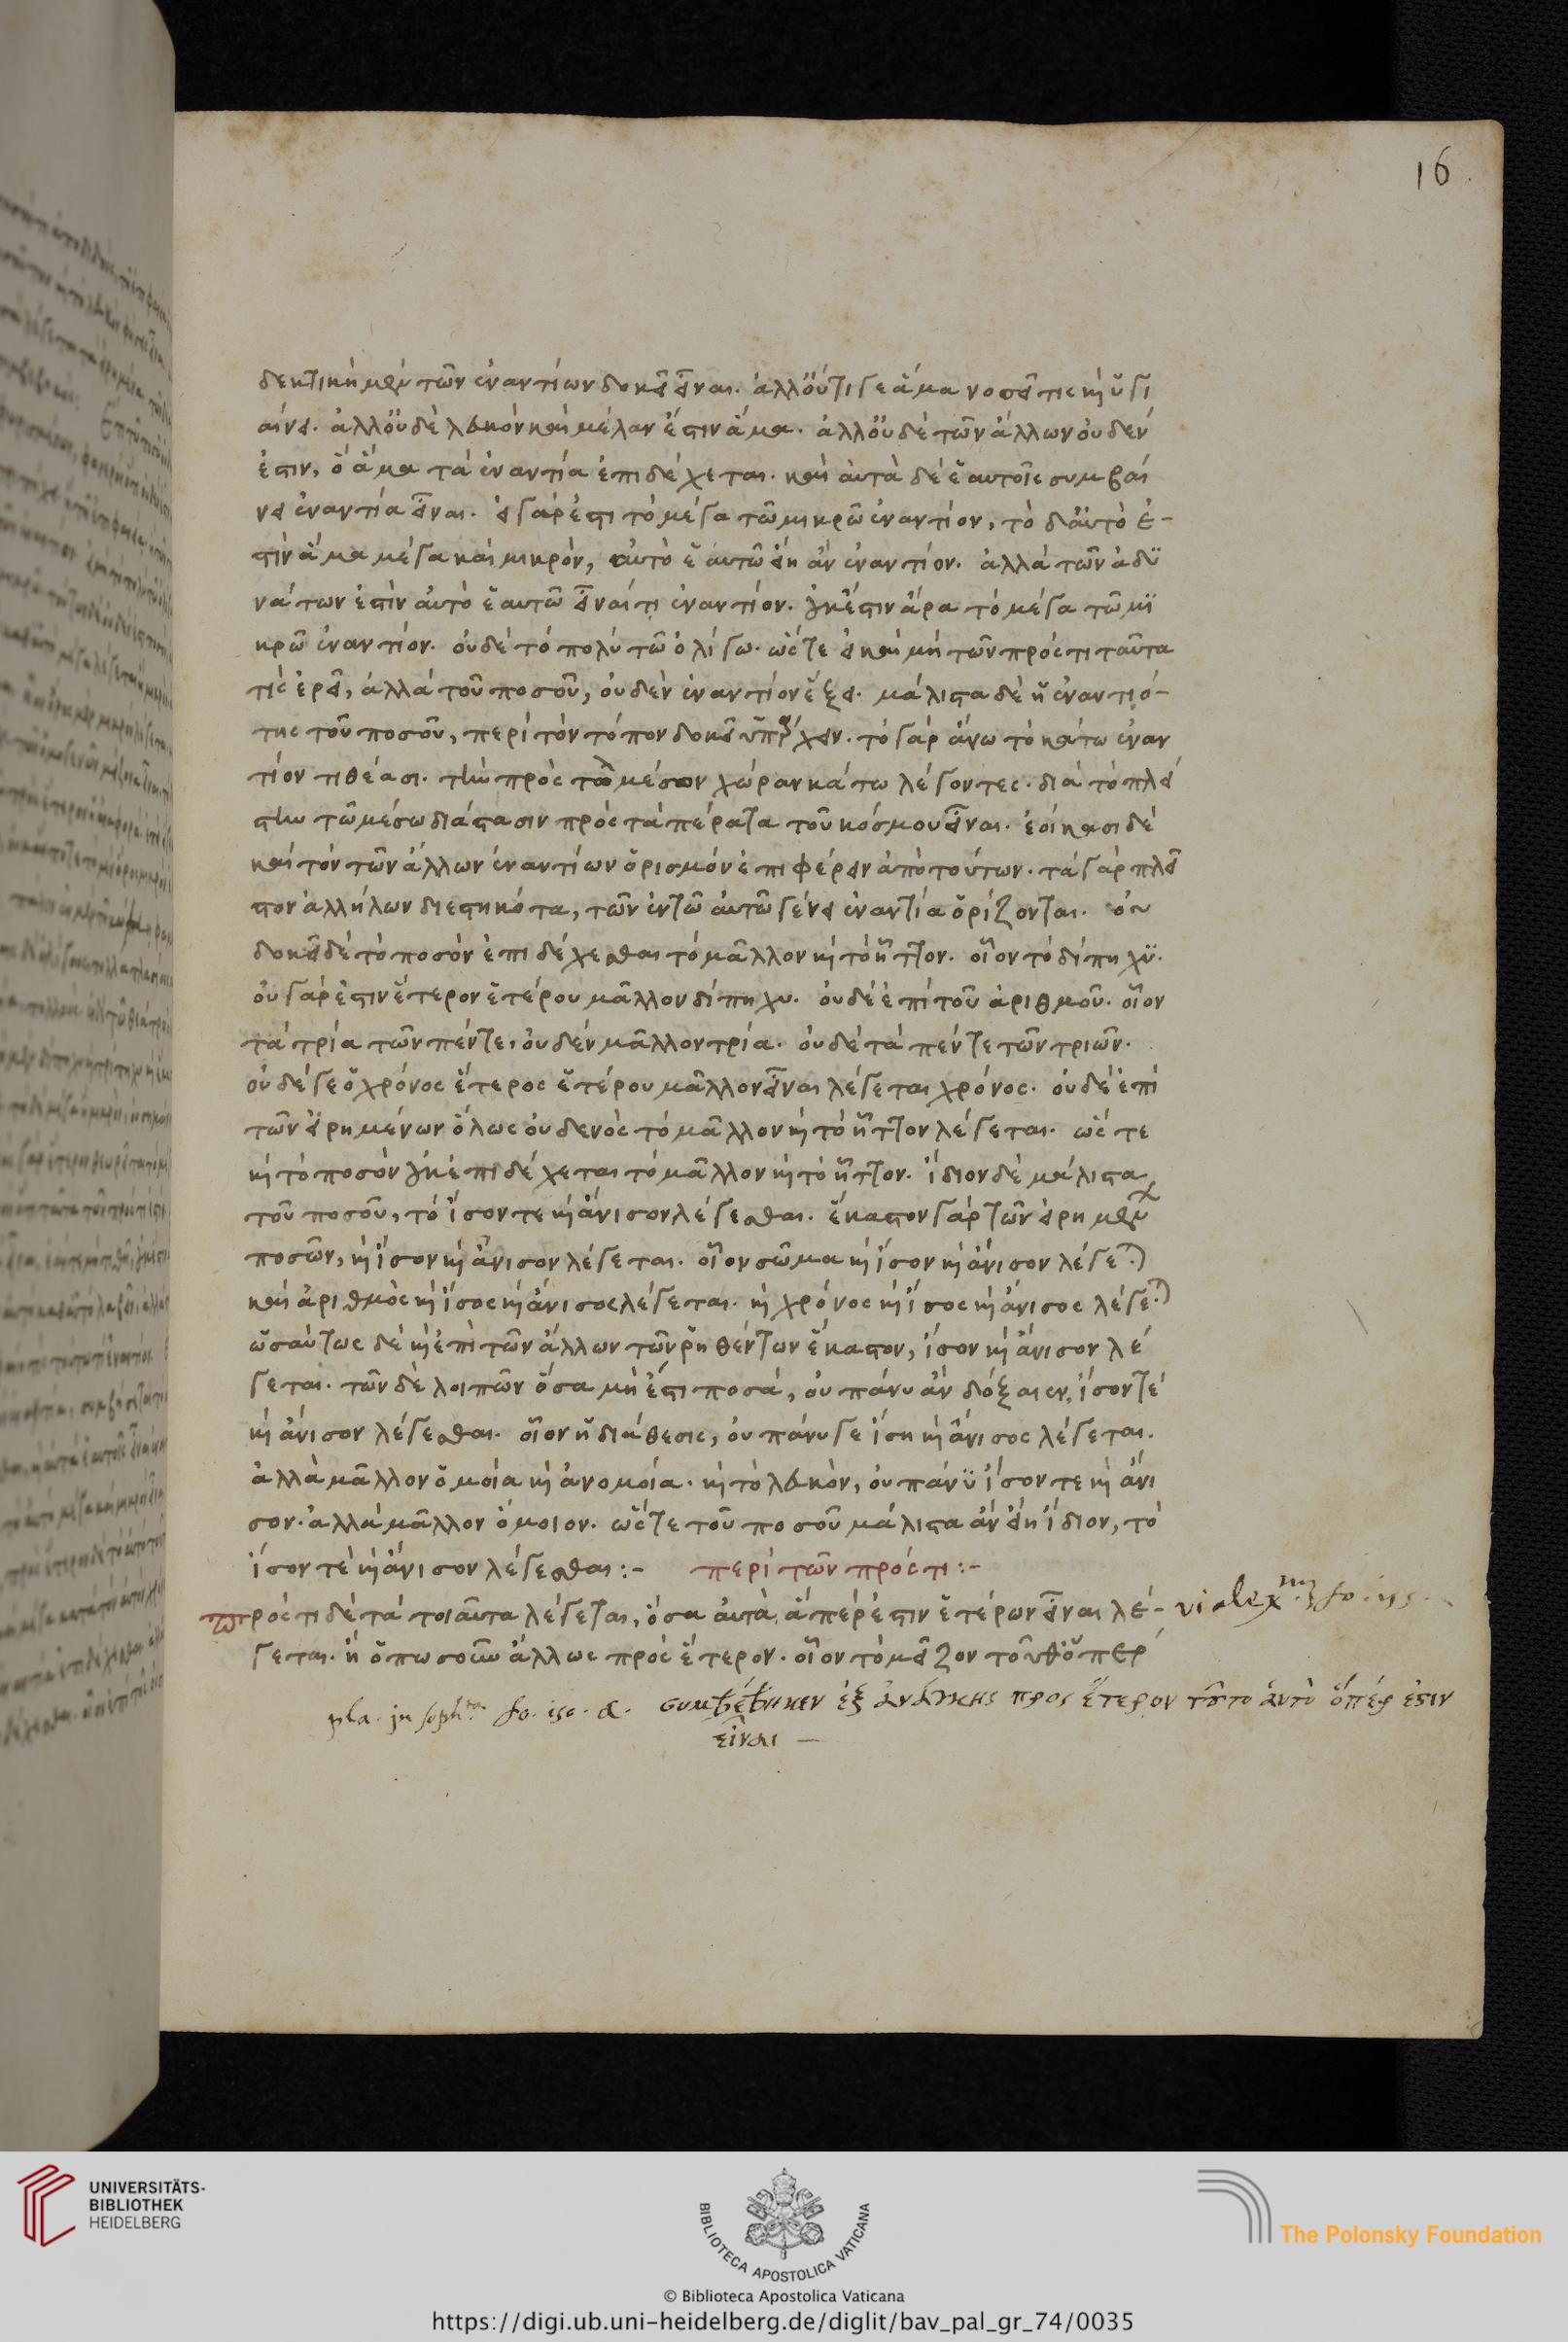 16
δεκτικὴ μὲν τῶν ἐναντίων δοκεῖ εἶναι. ἀλλ' οὔτι γε ἅμα νοσεῖ τις καὶ ὑγι
αίνει. ἀλλ' οὐδὲ λευκὸν καὶ μέλαν ἔστιν ἅμα. ἀλλ' οὐδὲ τῶν ἄλλων οὐδέν
ἐστιν, ὃ ἅμα τὰ ἐναντία ἐπιδέχεται. καὶ αὐτὰ δὲ ἑαυτοῖς συμβαί
νει ἐναντία εἶναι. εἰ γάρ ἐστι τὸ μέγα τῶ μικρῶ ἐναντίον, τὸ δ' αὐτὸ ἐ-
στὶν ἅμα μέγα καὶ μικρόν, αὐτὸ ἑαυτῶ εἴη ἂν ἐναντίον. ἀλλὰ τῶν ἀδυ
νάτων ἐστὶν αὐτὸ ἑαυτῶ εἶναί τι ἐναντίον. οὐκ ἔστιν ἄρα τὸ μέγα τῶ μι
κρῶ ἐναντίον. οὐδὲ τὸ πολὺ τῶ ὀλίγω. ὥστε εἰ καὶ μὴ τῶν πρός τι ταῦτα
τὶς ἐρεῖ, ἀλλὰ τοῦ ποσοῦ, οὐδὲν ἐναντίον ἕξει. μάλιστα δὲ ἡ ἐναντιό-
της τοῦ ποσοῦ, περὶ τὸν τόπον δοκεῖ ὑπάρχειν. τὸ γὰρ ἄνω τὸ κάτω ἐναν
τίον τιθέασι. τὴν πρὸς τὸ μέσον χώραν κάτω λέγοντες. διὰ τὸ πλεί
στην τῶ μέσω διάστασιν πρὸς τὰ πέρατα τοῦ κόσμου εἶναι. ἐοίκασι δὲ
καὶ τὸν τῶν ἄλλων ἐναντίων ὁρισμὸν ἐπιφέρειν ἀπὸ τούτων. τὰ γὰρ πλεῖ
στον ἀλλήλων διεστηκότα, τῶν ἐν τῶ αὐτῶ γένει ἐναντία ὁρίζονται. οὐ
δοκεῖ δὲ τὸ ποσὸν ἐπιδέχεσθαι τὸ μᾶλλον καὶ τὸ ἧττον. οἷον τὸ δίπηχυ.
οὐ γάρ ἐστιν ἕτερον ἑτέρου μᾶλλον δίπηχυ. οὐδὲ ἐπὶ τοῦ ἀριθμοῦ. οἷον
τὰ τρία τῶν πέντε, οὐδὲν μᾶλλον τρία. οὐδὲ τὰ πέντε τῶν τριῶν.
οὐδέ γε ὁ χρόνος ἕτερος ἑτέρου μᾶλλον εἶναι λέγεται χρόνος. οὐδὲ ἐπὶ
τῶν εἰρημένων ὅλως οὐδενὸς τὸ μᾶλλον καὶ τὸ ἧττον λέγεται. ὥστε
καὶ τὸ ποσὸν οὐκ ἐπιδέχεται τὸ μᾶλλον καὶ τὸ ἧττον. ἴδιον δὲ μάλιστα
τοῦ ποσοῦ, τὸ ἴσον τε καὶ ἄνισον λέγεσθαι. ἕκαστον γὰρ τῶν εἰρημένων
ποσῶν, καὶ ἴσον καὶ ἄνισον λέγεται. οἷον σῶμα καὶ ἴσον καὶ ἄνισον λέγεται
καὶ ἀριθμὸς καὶ ἴσος καὶ ἄνισος λέγεται. καὶ χρόνος καὶ ἴσος καὶ ἄνισος λέγεται
ὡσαύτως δὲ καὶ ἐπὶ τῶν ἄλλων τῶν ῥηθέντων ἕκαστον, ἴσον καὶ ἄνισον λέ
γεται. τῶν δὲ λοιπῶν ὅσα μὴ ἔστι ποσά, οὐ πάνυ ἂν δόξαιεν, ἴσον τέ
καὶ ἄνισον λέγεσθαι. οἷον ἡ διάθεσις, οὐ πάνυ γε ἴση καὶ ἄνισος λέγεται.
ἀλλὰ μᾶλλον ὁμοία καὶ ἀνομοία. καὶ τὸ λευκόν, οὐ πάνυ ἴσον τε καὶ ἄνι
σον. ἀλλὰ μᾶλλον ὅμοιον. ὥστε τοῦ ποσοῦ μάλιστα ἂν εἴη ἴδιον, τὸ
ἴσον τὲ καὶ ἄνισον λέγεσθαι:- περὶ τῶν πρός τι:-
πρός τι δὲ τὰ τοιαῦτα λέγεται, ὅσα αὐτὰ ἅπέρ ἐστιν ἑτέρων εἶναι λέ-
γεται. ἢ ὁπωσοῦν ἄλλως πρὸς ἕτερον. οἷον τὸ μεῖζον τοῦθ' ὅπερ
συμβέβηκεν ἐξ ἀνάγκης προς ἕτερον τοῦτο αὐτὸ ὅπέρ ἐστιν
εἶναι —
UNIVERSITÄTS-
BIBLIOTHEK
HEIDELBERG
BIBLIOTECA APOSTOLICA VATICANA
The Polonsky Foundation
© Biblioteca Apostolica Vaticana
https://digi.ub.uni-heidelberg.de/diglit/bav_pal_gr_74/0035